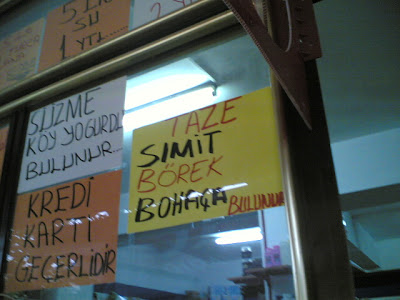 SU
1 YTL...
SÜZME
KÖY YOĞURDU
BULUNUR...
TAZE
SIMIT
BÖREK
BOHAÇA BULUNUR
KREDİ
KARTI
GEÇERLİDİR